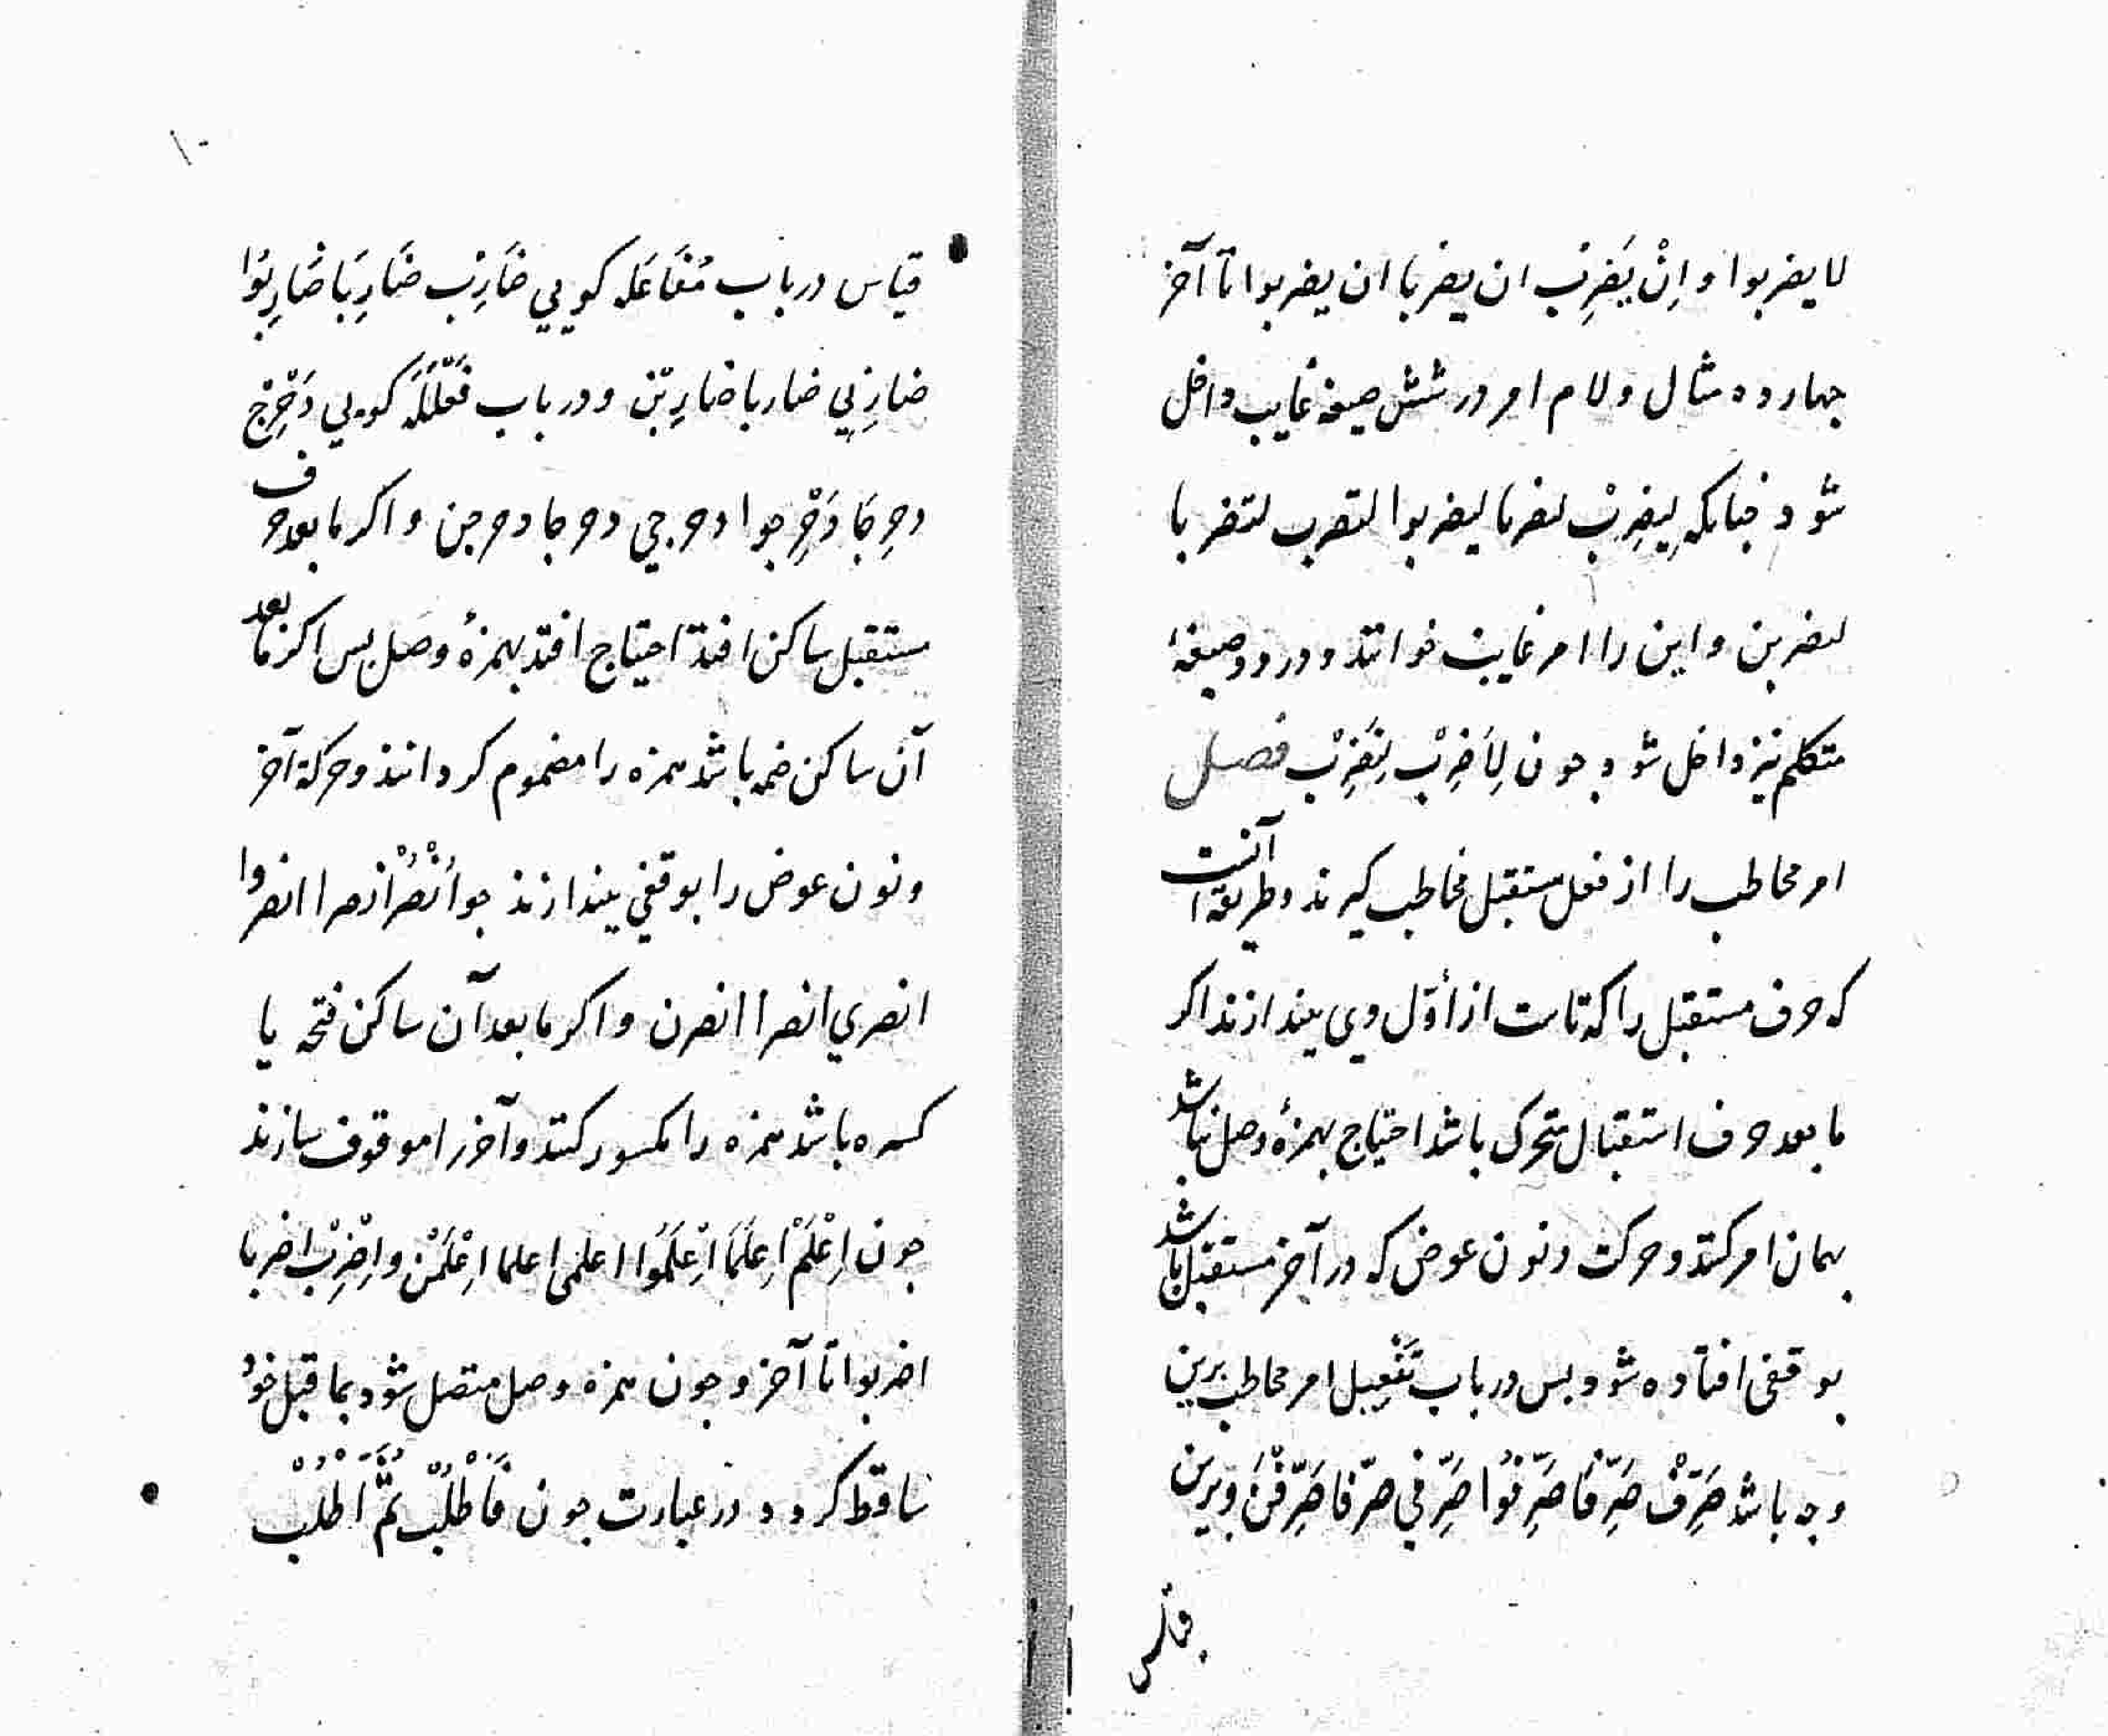 لا يضربوا و اِنْ يَضرِبْ ان يضربا ان يضربوا تا آخر
جهارده مثال و لام امر در شش صيغه غايب داخل
شود جنانكه لِيَضرِبْ ليضربا ليضربوا لتضرب لتضربا
ليضربن و اين را امر غايب خوانند و در دو صيغهٔ
متكلم نيز داخل شود جون لِاَضرِبْ لِنَضرِبْ فصل
امر مخاطب را از فعل مستقبل مخاطب كيرند و طريقه آنست
كه حرف مستقبل را كه تاست از أوّل وى بيندازند اكر
ما بعد حرف استقبال متحرك باشد احتياج بهمزهٔ وصل نباشد
بهمان امر كنند و حركت و نون عوض كه در آخر مستقبل باشد
بوقفى افتاده شود بس در باب تَفْعِيل امر مخاطب برين
وجه باشد صَرِّفْ صَرِّفَا صَرِّفُوا صَرِّفي صرّفا صَرِّفْنَ و برين
قياس
قياس در باب مُفَاعَلَه كويي ضَارِبْ ضَارِبَا ضَارِبُوا
ضارِبِي ضاربا ضارِبْنَ و در باب فَعْلَلَة كويي دَحْرِجْ
دحرِجَا دَحْرِجوا دحرجي دحرجا دحرجن و اكر ما بعد حرف
مستقبل ساكن افتد احتياج افتد بهمزهٔ وصل بس اكر ما بعد
آن ساكن ضمه باشد همزه را مضموم كردانند و حركة آخر
و نون عوض را بوقفي بيندازند جو اُنْصُرْ انصرا انصروا
انصري انصرا انصرن و اكر ما بعد آن ساكن فتحه يا
كسره باشد همزه را مكسور كنند و آخر را موقوف سازند
جون اِعْلَمْ اِعلَمَا اِعْلَمُوا اعلمى اعلما اِعْلَمْنَ و اِضْرِبْ اضربا
اضربوا تا آخر و جون همزه وصل متصل شود بما قبل خود
ساقط كردد در عبارت جون فَاطْلُبْ ثُمَّ اطْلُبْ